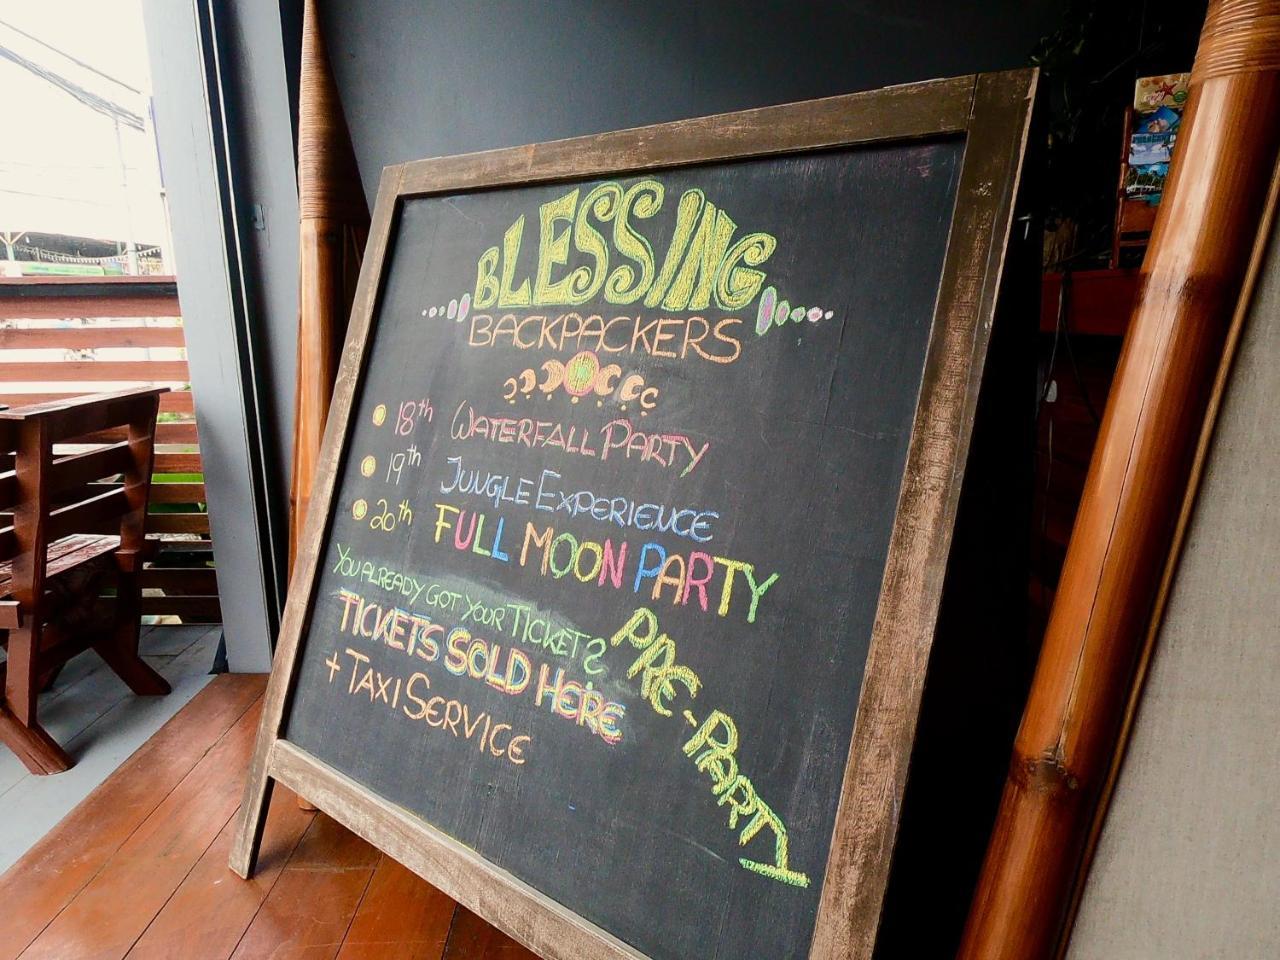 BLESSING
BACKPACKERS
18th WATERFALL PARTY
19th JUNGLE EXPERIENCE
20th FULL MOON PARTY
YOU ALREADY GOT YOUR TICKET?
TICKETS SOLD HERE
+ TAXI SERVICE
PRE-PARTY